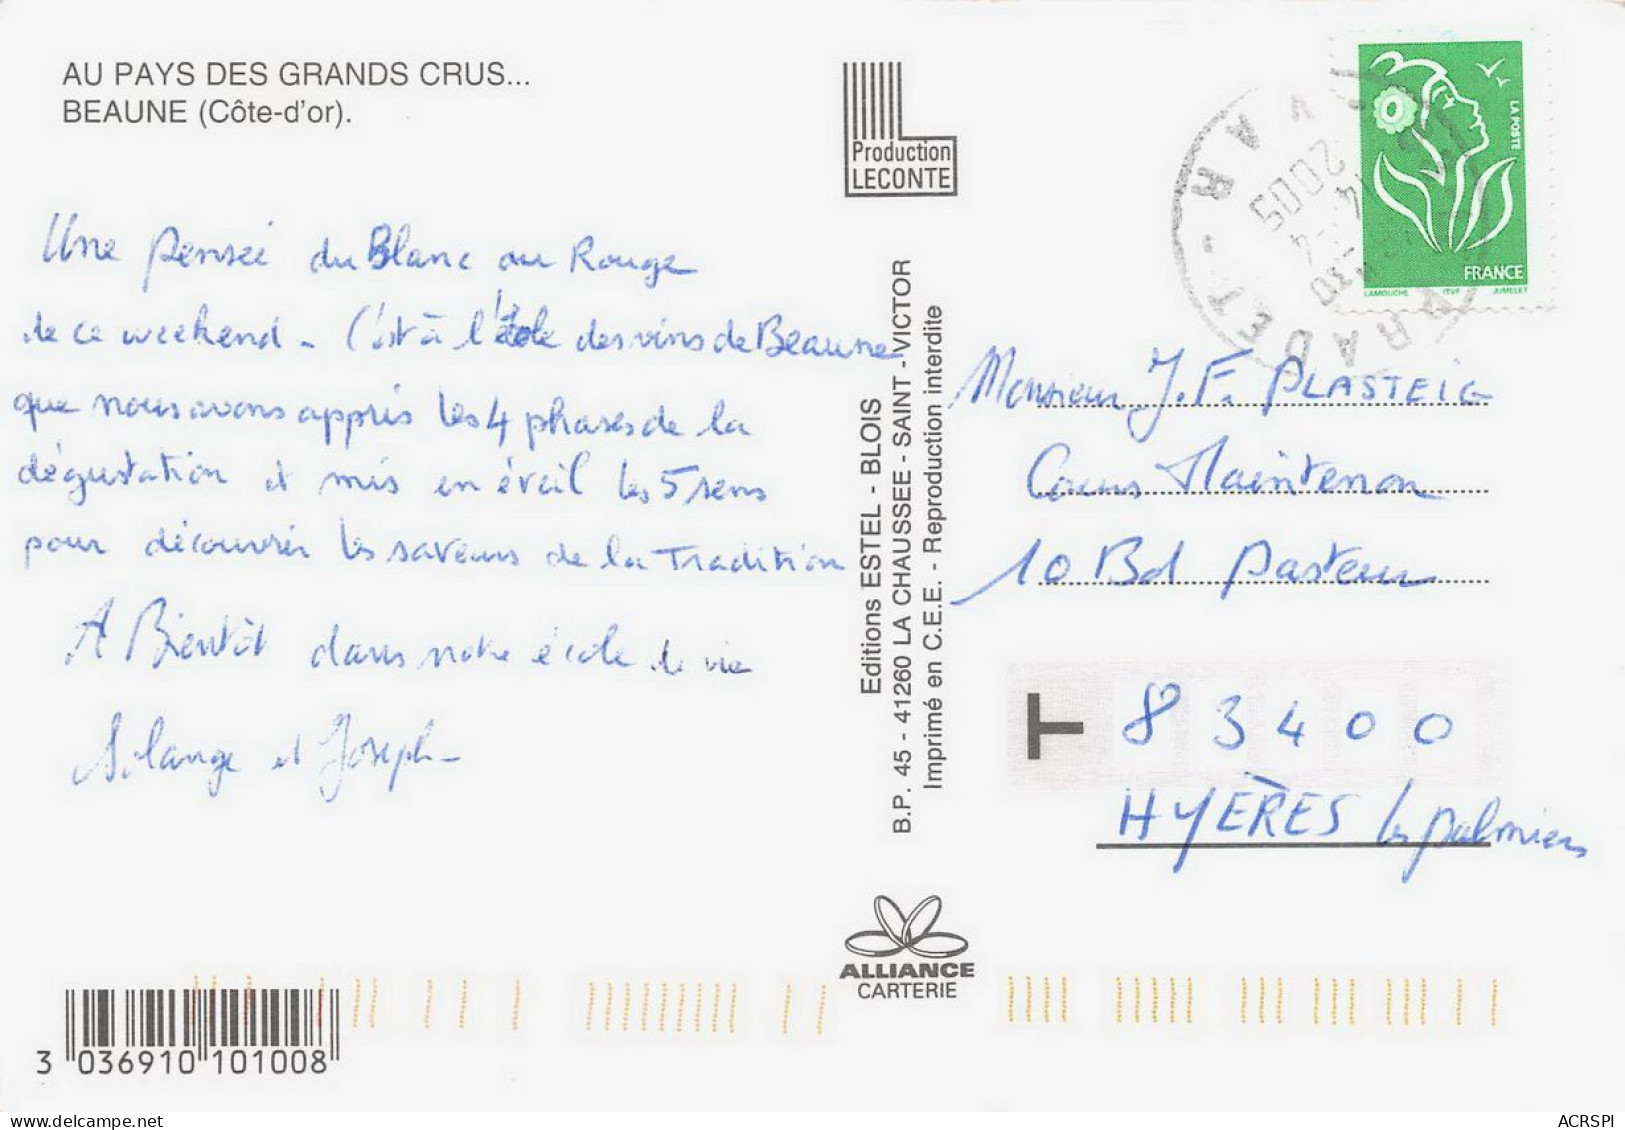 AU PAYS DES GRANDS CRUS...
BEAUNE (Côte-d'or).
Une pensée du Blanc au Rouge
de ce weekend - C'est à l'école des vins de Beaune
que nous avons appris les 4 phases de la
dégustation et mis en éveil les 5 sens
pour découvrir les saveurs de la Tradition
A Bientôt dans notre école de vie
Solange et Joseph -
Production
LECONTE
Editions ESTEL - BLOIS
B.P. 45 - 41260 LA CHAUSSEE - SAINT - VICTOR
Imprimé en C.E.E. - Reproduction interdite
ALLIANCE
CARTERIE
LA POSTE
FRANCE
LAMOUCHE ITVF JUMELET
PRADET - VAR
2005
Monsieur J.F. PLASTEIG
Cours Maintenon
10 Bd Pasteur
T 83400
HYÈRES les palmiers
3 036910 101008
www.delcampe.net
ACRSPI